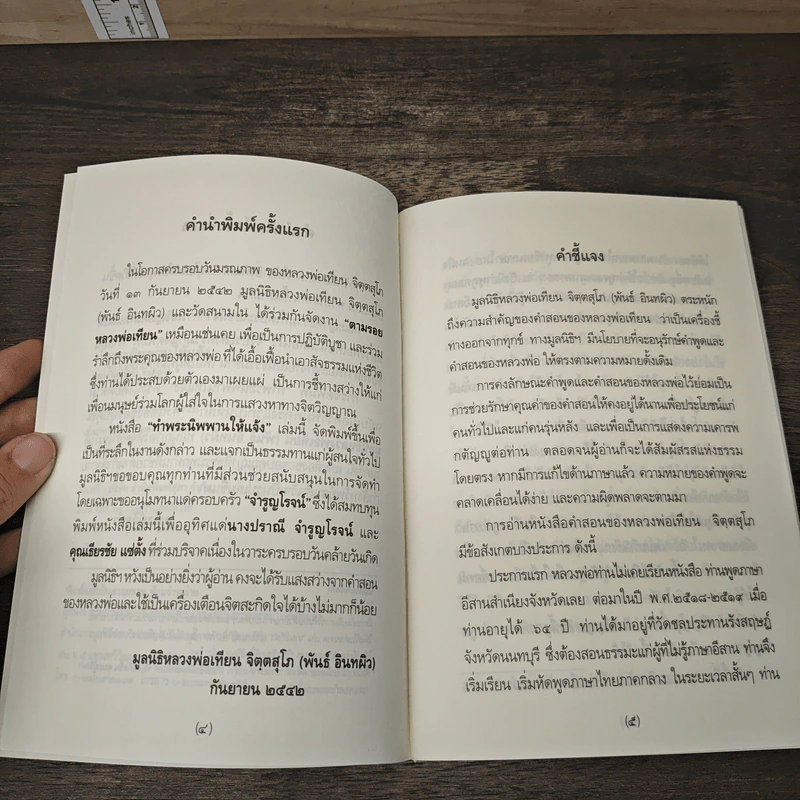 INCHES
1
คำนำพิมพ์ครั้งแรก
ในโอกาสครบรอบวันมรณภาพ ของหลวงพ่อเทียน จิตฺตสุโภ
วันที่ ๑๓ กันยายน ๒๕๔๒ มูลนิธิหลวงพ่อเทียน จิตฺตสุโภ
(พันธ์ อินทผิว) และวัดสนามใน ได้ร่วมกันจัดงาน "ตามรอย
หลวงพ่อเทียน" เหมือนเช่นเคย เพื่อเป็นการปฏิบัติบูชา และร่วม
รำลึกถึงพระคุณของหลวงพ่อ ที่ได้เอื้อเฟื้อนำเอาสัจธรรมแห่งชีวิต
ซึ่งท่านได้ประสบด้วยตัวเองมาเผยแผ่ เป็นการชี้ทางสว่างให้แก่
เพื่อนมนุษย์ร่วมโลกผู้ใส่ใจในการแสวงหาทางจิตวิญญาณ
หนังสือ "ทำพระนิพพานให้แจ้ง" เล่มนี้ จัดพิมพ์ขึ้นเพื่อ
เป็นที่ระลึกในงานดังกล่าว และแจกเป็นธรรมทานแก่ผู้สนใจทั่วไป
มูลนิธิฯขอขอบคุณทุกท่านที่มีส่วนช่วยสนับสนุนในการจัดทำ
โดยเฉพาะขออนุโมทนาแด่ครอบครัว "จำรูญโรจน์" ซึ่งได้สมทบทุน
พิมพ์หนังสือเล่มนี้เพื่ออุทิศแด่นางปราณี จำรูญโรจน์ และ
คุณเธียรชัย แซ่ตั้ง ที่ร่วมบริจาคเนื่องในวาระครบรอบวันคล้ายวันเกิด
มูลนิธิฯ หวังเป็นอย่างยิ่งว่าผู้อ่าน คงจะได้รับแสงสว่างจากคำสอน
ของหลวงพ่อและใช้เป็นเครื่องเตือนจิตสะกิดใจได้บ้างไม่มากก็น้อย
มูลนิธิหลวงพ่อเทียน จิตฺตสุโภ (พันธ์ อินทผิว)
กันยายน ๒๕๔๒
(๔)
คำชี้แจง
มูลนิธิหลวงพ่อเทียน จิตฺตสุโภ (พันธ์ อินทผิว) ตระหนัก
ถึงความสำคัญของคำสอนของหลวงพ่อเทียน ว่าเป็นเครื่องชี้
ทางออกจากทุกข์ ทางมูลนิธิฯ มีนโยบายที่จะอนุรักษ์คำพูดและ
คำสอนของหลวงพ่อ ให้ตรงตามความหมายดั้งเดิม
การคงลักษณะคำพูดและคำสอนของหลวงพ่อไว้ย่อมเป็น
การช่วยรักษาคุณค่าของคำสอนให้คงอยู่ได้นานเพื่อประโยชน์แก่
คนทั่วไปและแก่คนรุ่นหลัง และเพื่อเป็นการแสดงความเคารพ
กตัญญูต่อท่าน ตลอดจนผู้อ่านก็จะได้สัมผัสรสแห่งธรรม
โดยตรง หากมีการแก้ไขด้านภาษาแล้ว ความหมายของคำพูดจะ
คลาดเคลื่อนได้ง่าย และความผิดพลาดจะตามมา
การอ่านหนังสือคำสอนของหลวงพ่อเทียน จิตฺตสุโภ
มีข้อสังเกตบางประการ ดังนี้
ประการแรก หลวงพ่อท่านไม่เคยเรียนหนังสือ ท่านพูดภาษา
อีสานสำเนียงจังหวัดเลย ต่อมาในปี พ.ศ.๒๕๑๘-๒๕๑๙ เมื่อ
ท่านอายุได้ ๖๔ ปี ท่านได้มาอยู่ที่วัดชลประทานรังสฤษฎ์
จังหวัดนนทบุรี ซึ่งต้องสอนธรรมะแก่ผู้ที่ไม่รู้ภาษาอีสาน ท่านจึง
เริ่มเรียน เริ่มหัดพูดภาษาไทยภาคกลาง ในระยะเวลาสั้นๆ ท่าน
(๕)